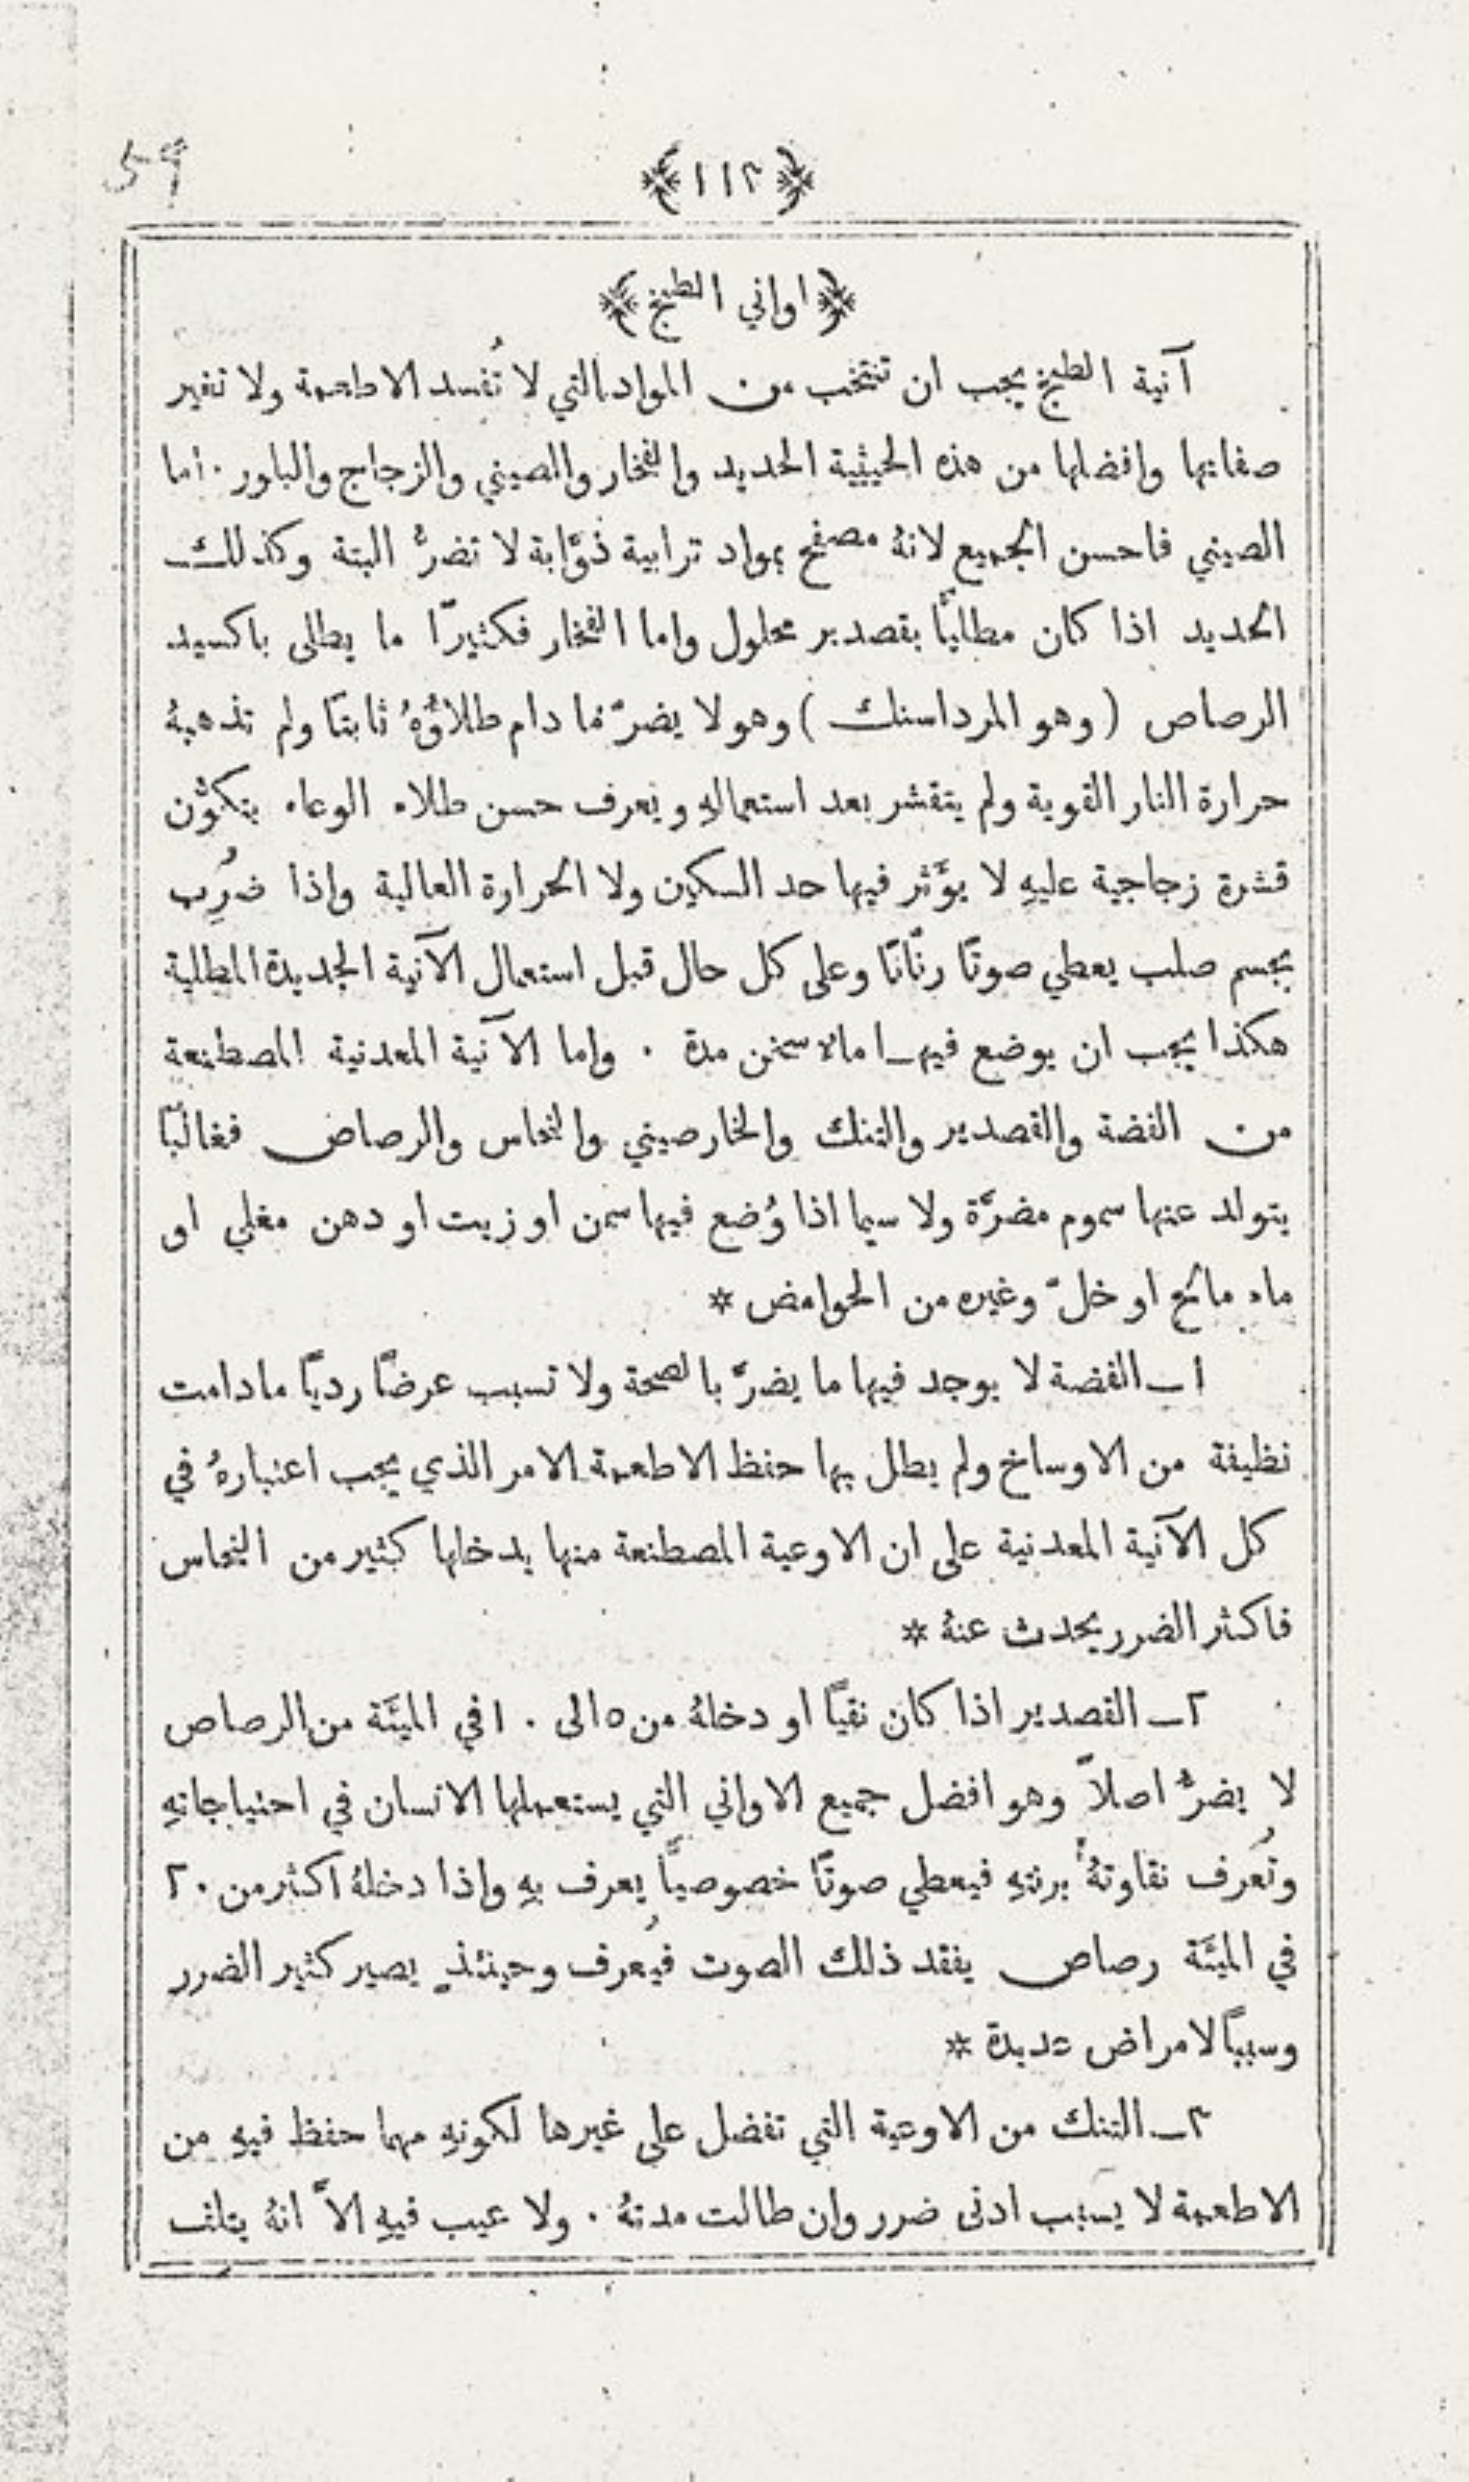 59
﴿١١٢﴾
﴿اواني الطبخ﴾
آنية الطبخ يجب ان تنتخب من المواد التي لا تُفسد الاطعمة ولا تغير
صفاتها وافضلها من هذه الحيثية الحديد والفخار والصيني والزجاج والبلور ٠ اما
الصيني فاحسن الجميع لانهُ مصفح بمواد ترابية ذوَّابة لا تضرُّ البتة وكذلك
الحديد اذا كان مطليًّا بقصدير محلول واما الفخار فكثيرًا ما يطلى باكسيد
الرصاص (وهو المرداسنك) وهو لا يضرّ ما دام طلاؤُهُ ثابتًا ولم تذهبهُ
حرارة النار القوية ولم يتقشر بعد استعمالهِ ويُعرف حسن طلاء الوعاء بتكوُّن
قشرة زجاجية عليهِ لا يؤَثر فيها حد السكين ولا الحرارة العالية واذا ضُرِب
بجسم صلب يعطي صوتًا رنّانًا وعلى كل حال قبل استعمال الآنية الجديدة المطلية
هكذا يجب ان يوضع فيها ماء سخن مدة ٠ واما الآنية المعدنية المصطنعة
من الفضة والقصدير والتنك والخارصيني والنحاس والرصاص فغالبًا
يتولد عنها سموم مضرَّة ولا سيما اذا وُضع فيها سمن او زيت او دهن مغلي او
ماء مالح او خلّ وغيره من الحوامض *
١ــ الفضة لا يوجد فيها ما يضرّ بالصحة ولا تسبب عرضًا رديًا ما دامت
نظيفة من الاوساخ ولم يطل بها حفظ الاطعمة الامر الذي يجب اعتبارهُ في
كل الآنية المعدنية على ان الاوعية المصطنعة منها يدخلها كثير من النحاس
فاكثر الضرر يحدث عنهُ *
٢ــ القصدير اذا كان نقيًا او دخلهُ من ٥ الى ١٠ في الميَّة من الرصاص
لا يضرُّ اصلاً وهو افضل جميع الاواني التي يستعملها الانسان في احتياجاتهِ
وتُعرف نقاوتهُ برنتهِ فيعطي صوتًا خصوصيًّا يعرف بهِ واذا دخلهُ اكثر من ٢٠
في الميَّة رصاص يفقد ذلك الصوت فيُعرف وحينئذٍ يصير كثير الضرر
وسببًا لامراض عديدة *
٣ــ التنك من الاوعية التي تفضل على غيرها لكونهِ مهما حفظ فيهِ من
الاطعمة لا يسبب ادنى ضرر وان طالت مدتهُ ٠ ولا عيب فيهِ الاَّ انهُ يتلف